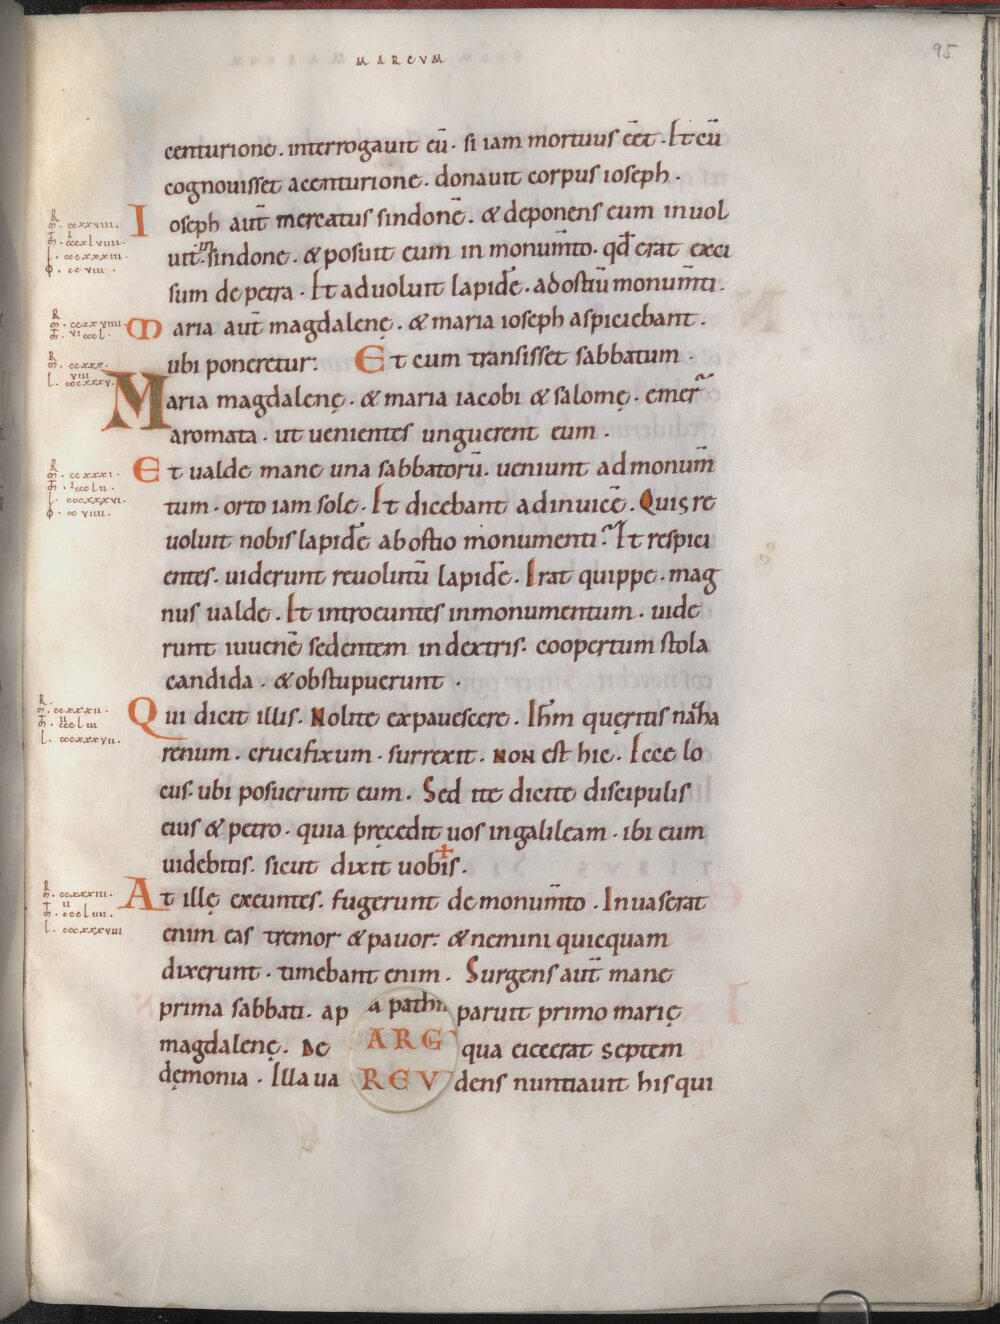 MARCVM
95
centurione. interrogauit eū. si iam mortuus eēt. Et cū
cognouisset acenturione. donauit corpus ioseph.
Ioseph aut̄ mercatus sindonē. & deponens eum inuol
uit in sindone. & posuit eum in monum̄to. qđ erat exci
sum depetra. Et aduoluit lapidē. adostiū monum̄ti.
Maria aut̄ magdalenę. & maria ioseph aspiciebant.
ubi poneretur: Et cum transisset sabbatum.
Maria magdalenę. & maria iacobi & salomę. emer̄
aromata. ut uenientes unguerent eum.
Et ualde mane una sabbatorū. ueniunt admonum̄
tum. orto iam sole. Et dicebant adinuicē. Quis re
uoluit nobis lapidē abostio monumenti? Et respici
entes. uiderunt reuolutū lapidē. Erat quippe. mag
nus ualde. Et introeuntes inmonumentum. uide
runt iuuenē sedentem indextris. coopertum stola
candida. & obstupuerunt.
Qui dicit illis. Nolite expauescere. Ihm̄ quęritis naʒha
renum. crucifixum. surrexit. NON est hic. Ecce lo
cus. ubi posuerunt eum. Sed ite dicite discipulis
eius & petro. quia pręcedit uos ingalileam. ibi eum
uidebitis. sicut dixit uobis.
At illę exeuntes. fugerunt demonum̄to. Inuaserat
enim eas tremor & pauor: & nemini quicquam
dixerunt. timebant enim. Surgens aut̄ mane
prima sabbati. ap a pathm paruit primo marię
magdalenę. De ARG qua eiecerat septem
dęmonia. Illa ua REV dens nuntiauit his qui